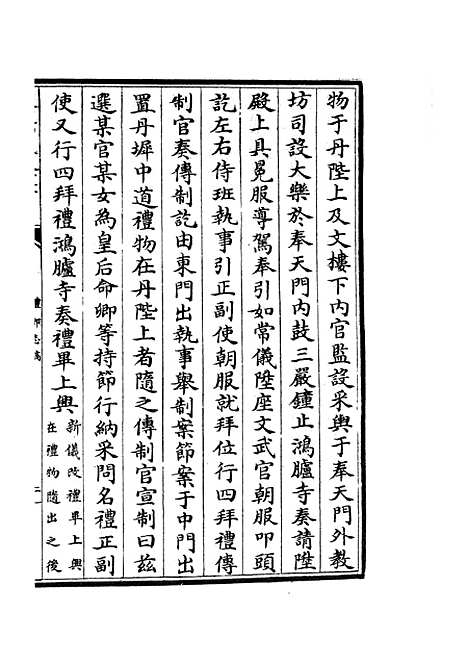 物于丹陛上及文樓下内官監設采輿于奉天門外教
坊司設大樂於奉天門内鼓三嚴鐘止鴻臚寺奏請陞
殿上具冕服導駕奉引如常儀陞座文武官朝服叩頭
訖左右侍班執事引正副使朝服就拜位行四拜禮傳
制官奏傳制訖由東門出執事舉制案節案于中門出
置丹墀中道禮物在丹陛上者隨之傳制官宣制曰兹
選某官某女為皇后命卿等持節行納采問名禮正副
使又行四拜禮鴻臚寺奏禮畢上興
新儀改禮畢上興
在禮物隨出之後
禮部志稿